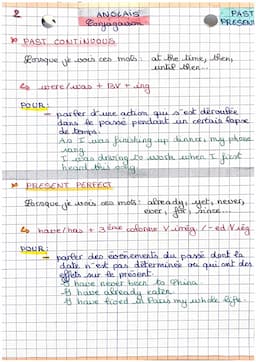 2
ANGLAIS
Conjugaison
PAST
PRESENT
PAST CONTINUOUS
Lorsque je vois ces mots: at the time, then,
until then...
were/was + BV + ing
POUR:
- parler d'une action qui s'est déroulée
dans le passé pendant un certain lapse
de temps.
As I was finishing up dinner, my phone
rang
I was driving to work when I first
heard this song
PRESENT PERFECT
Lorsque je vois ces mots: already, yet, never,
ever, for, since
have/has + 3ème colonne V irrég / -ed V rég
POUR:
- parler des événements du passé dont la
date n'est pas déterminée ou qui ont des
effets sur le présent.
I have never been to China
I have already eaten
I have lived in Paris my whole life.